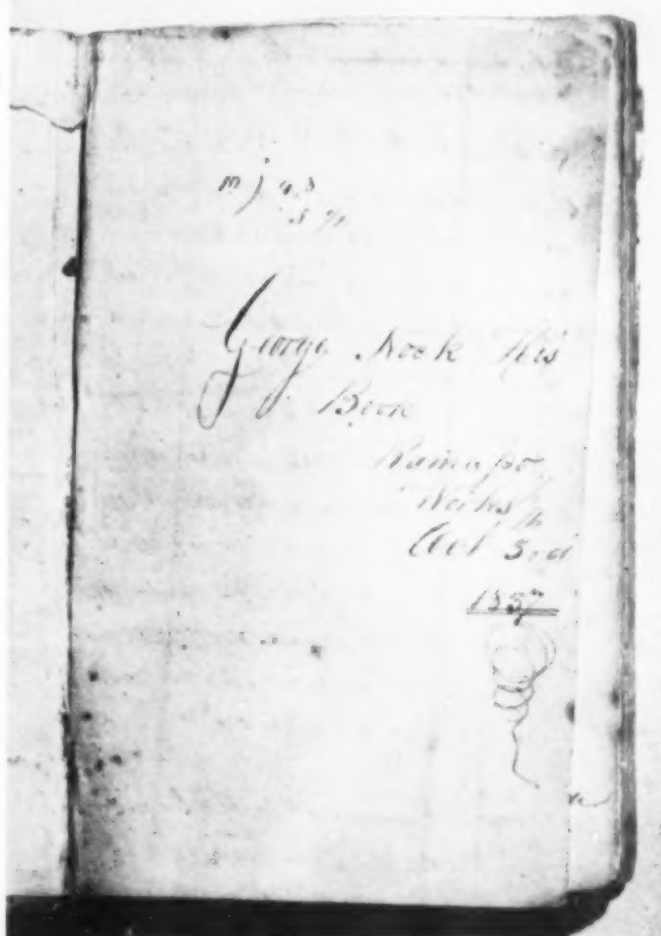 George Rook His
Book
Ramapo
Works
Oct 3rd
1857